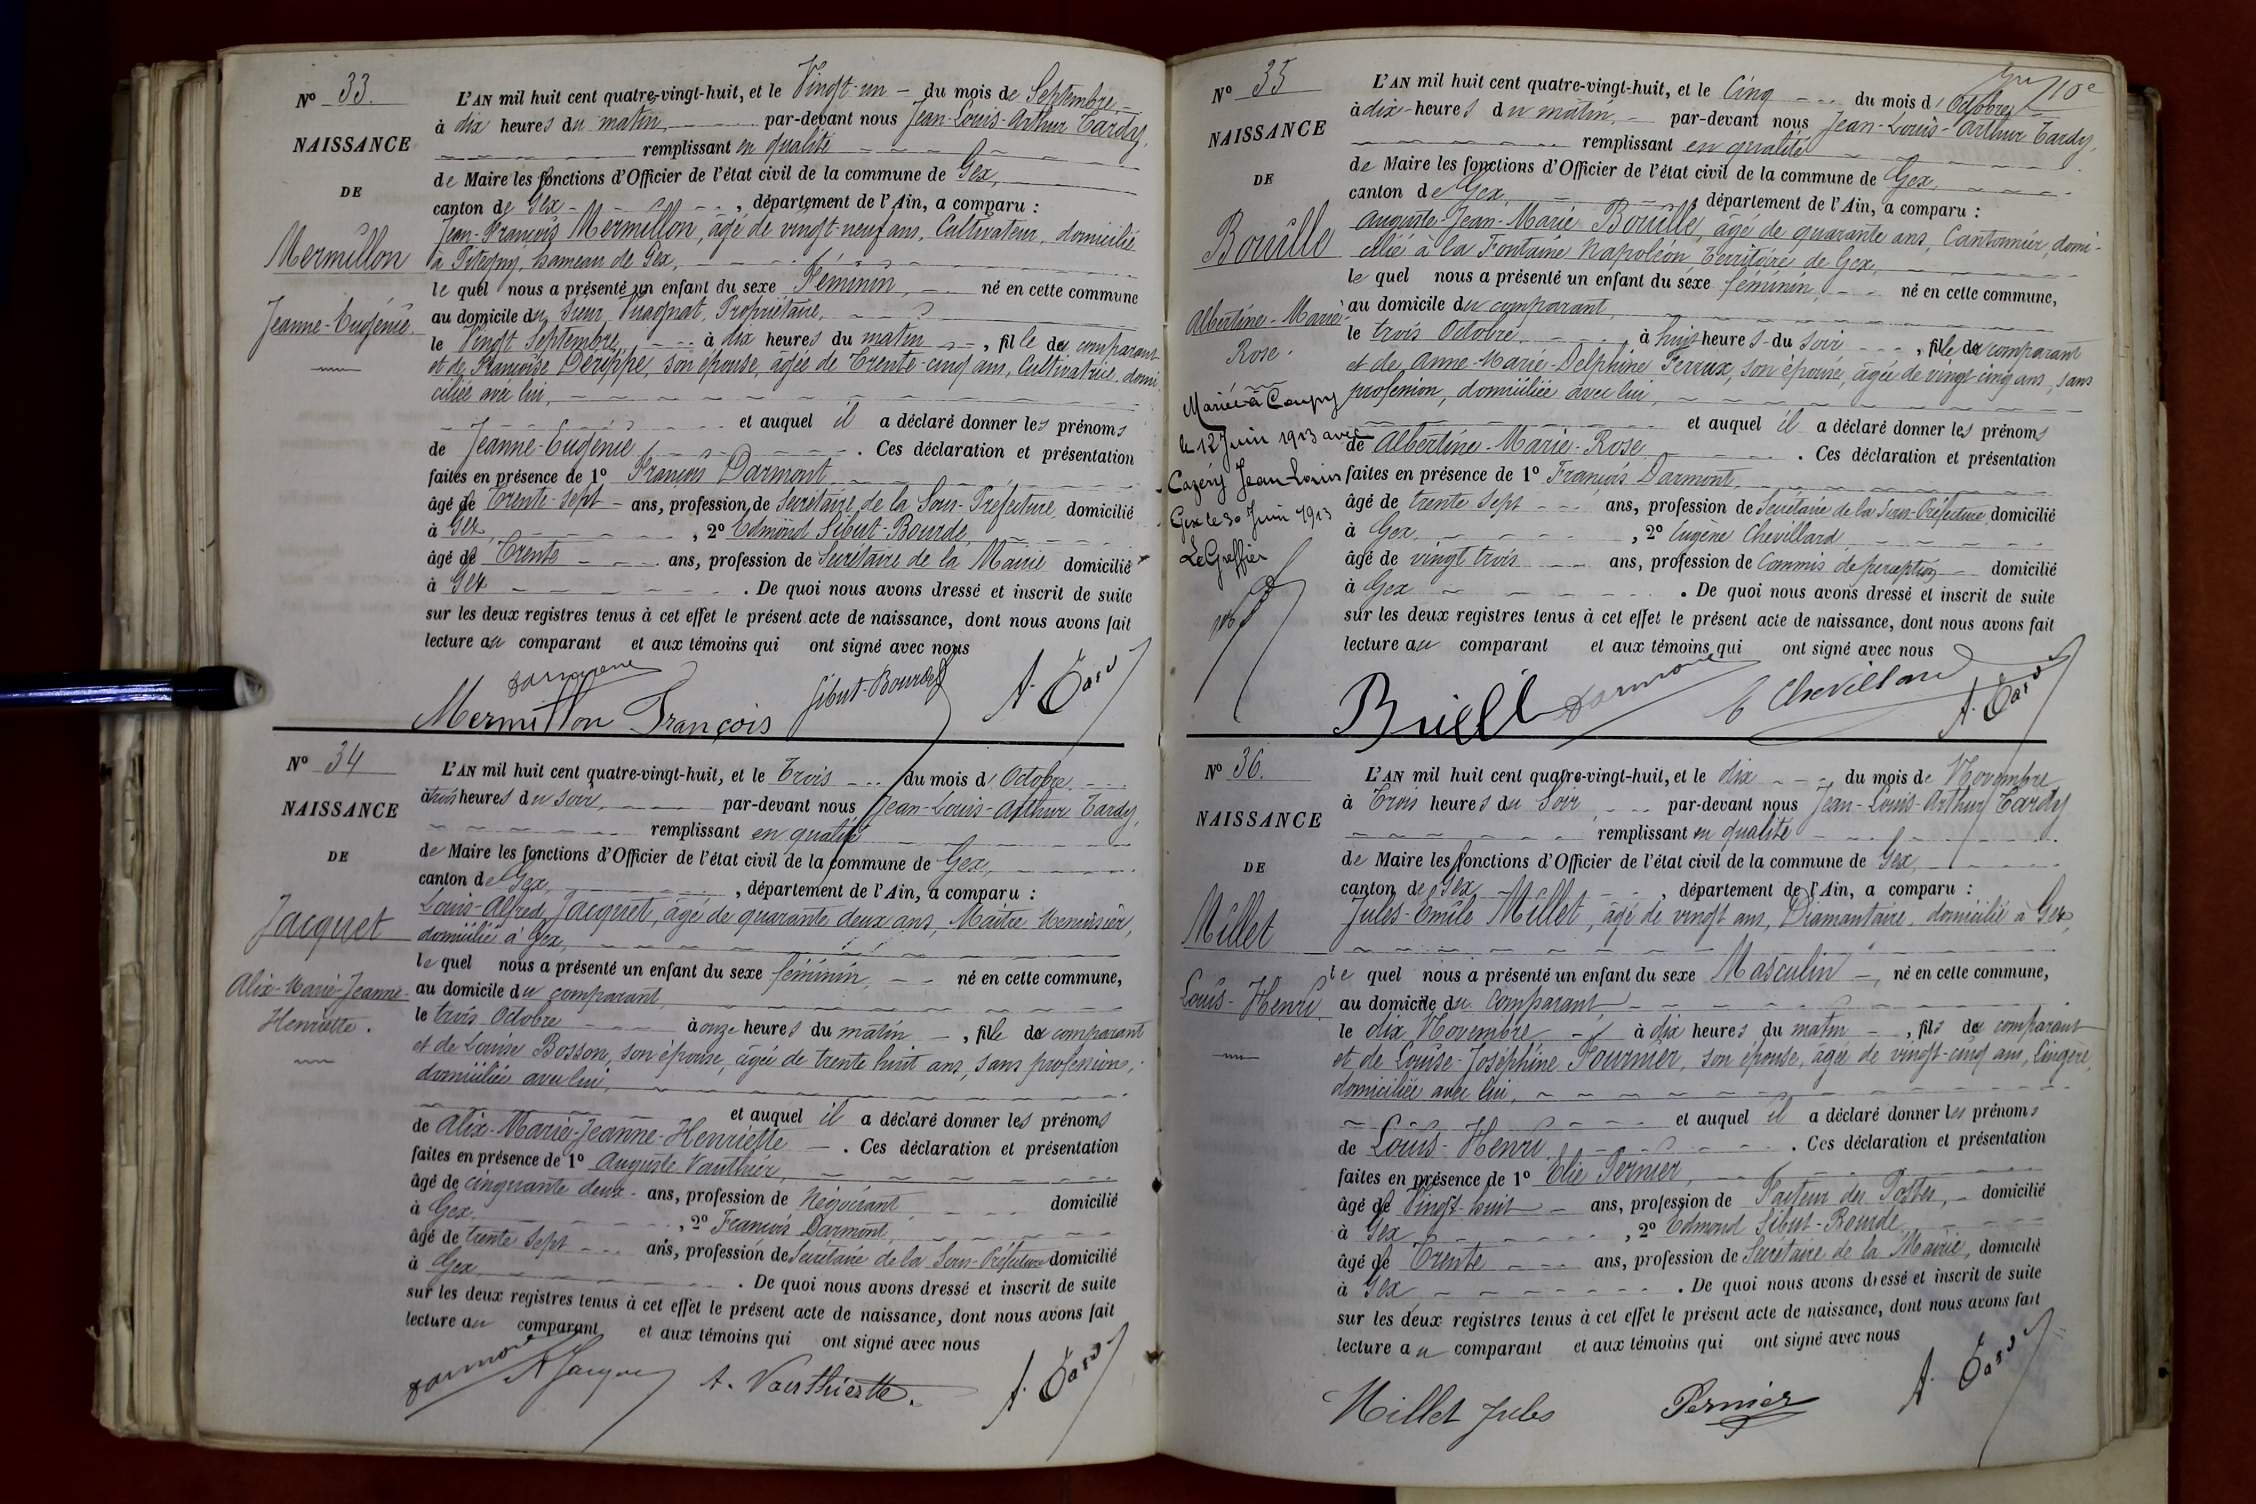 N° 33.
NAISSANCE
DE
Mermillon
Jeanne-Eugénie.
L'AN mil huit cent quatre-vingt-huit, et le Vingt-un du mois de Septembre
à dix heures du matin, par-devant nous Jean-Louis-Arthur Tardy,
remplissant en qualité
de Maire les fonctions d'Officier de l'état civil de la commune de Gex,
canton de Gex, département de l'Ain, a comparu :
Jean-François Mermillon, âgé de vingt-neuf ans, Cultivateur, domicilié
à Pitegny, hameau de Gex,
lequel nous a présenté un enfant du sexe Féminin, né en cette commune
au domicile du Sieur Vuagnat, Propriétaire,
le Vingt Septembre, à dix heures du matin, fille du comparant
et de Françoise Dérippe, son épouse, âgée de Trente-cinq ans, Cultivatrice, domi-
ciliée avec lui,
et auquel il a déclaré donner les prénoms
de Jeanne-Eugénie. Ces déclaration et présentation
faites en présence de 1° François Darmont
âgé de Trente-sept ans, profession de Secrétaire de la Sous-Préfecture, domicilié
à Gex, 2° Edmond Sibut-Bourde,
âgé de Trente ans, profession de Secrétaire de la Mairie domicilié
à Gex. De quoi nous avons dressé et inscrit de suite
sur les deux registres tenus à cet effet le présent acte de naissance, dont nous avons fait
lecture au comparant et aux témoins qui ont signé avec nous
Darmont
Mermillon François Sibut-Bourde A. Tardy
N° 34
NAISSANCE
DE
Jacquet
Alix-Marie-Jeanne-
Henriette.
L'AN mil huit cent quatre-vingt-huit, et le Trois du mois d'Octobre
à trois heures du soir, par-devant nous Jean-Louis-Arthur Tardy,
remplissant en qualité
de Maire les fonctions d'Officier de l'état civil de la commune de Gex,
canton de Gex, département de l'Ain, a comparu :
Louis-Alfred Jacquet, âgé de quarante deux ans, Maître Menuisier,
domicilié à Gex,
lequel nous a présenté un enfant du sexe féminin, né en cette commune,
au domicile du comparant,
le trois Octobre à onze heures du matin, fille du comparant
et de Louise Bosson, son épouse, âgée de trente huit ans, sans profession,
domiciliée avec lui,
et auquel il a déclaré donner les prénoms
de Alix-Marie-Jeanne-Henriette. Ces déclaration et présentation
faites en présence de 1° Auguste Vauthier,
âgé de cinquante deux ans, profession de Négociant domicilié
à Gex, 2° François Darmont,
âgé de trente sept ans, profession de Secrétaire de la Sous-Préfecture domicilié
à Gex. De quoi nous avons dressé et inscrit de suite
sur les deux registres tenus à cet effet le présent acte de naissance, dont nous avons fait
lecture au comparant et aux témoins qui ont signé avec nous
Darmont A. Vauthier A. Tardy
N° 35
NAISSANCE
DE
Bouille
Albertine-Marie-
Rose.
Mariée à Coupy
le 12 Juin 1913 avec
Cazény Jean-Louis
Gex le 30 Juin 1913
Le Greffier
10e
L'AN mil huit cent quatre-vingt-huit, et le Cinq du mois d'Octobre
à dix heures du matin, par-devant nous Jean-Louis-Arthur Tardy,
remplissant en qualité
de Maire les fonctions d'Officier de l'état civil de la commune de Gex,
canton de Gex, département de l'Ain, a comparu :
Auguste-Jean-Marie Bouille, âgé de quarante ans, Cantonnier, domi-
cilié à la Fontaine Napoléon Territoire de Gex,
lequel nous a présenté un enfant du sexe féminin, né en cette commune,
au domicile du comparant,
le trois Octobre, à huit heures du soir, fille du comparant
et de Anne-Marie-Delphine Perrux, son épouse, âgée de vingt cinq ans, sans
profession, domiciliée avec lui,
et auquel il a déclaré donner les prénoms
de Albertine-Marie-Rose. Ces déclaration et présentation
faites en présence de 1° François Darmont,
âgé de trente sept ans, profession de Secrétaire de la Sous-Préfecture domicilié
à Gex, 2° Eugène Chevillard,
âgé de vingt trois ans, profession de Commis de perception domicilié
à Gex. De quoi nous avons dressé et inscrit de suite
sur les deux registres tenus à cet effet le présent acte de naissance, dont nous avons fait
lecture au comparant et aux témoins qui ont signé avec nous
Darmont E Chevillard A. Tardy
N° 36.
NAISSANCE
DE
Millet
Louis-Henri
L'AN mil huit cent quatre-vingt-huit, et le dix du mois de Novembre
à Trois heures du Soir par-devant nous Jean-Louis-Arthur Tardy
remplissant en qualité
de Maire les fonctions d'Officier de l'état civil de la commune de Gex,
canton de Gex, département de l'Ain, a comparu :
Jules-Emile Millet, âgé de vingt ans, Diamantaire, domicilié à Gex,
lequel nous a présenté un enfant du sexe Masculin, né en cette commune,
au domicile du Comparant
le dix Novembre à dix heures du matin, fils du comparant
et de Louise-Joséphine Fournier, son épouse, âgée de vingt-cinq ans, Lingère,
domiciliée avec lui,
et auquel il a déclaré donner les prénoms
de Louis-Henri. Ces déclaration et présentation
faites en présence de 1° Elie Pernier,
âgé de Vingt-huit ans, profession de Facteur des Postes, domicilié
à Gex, 2° Edmond Sibut-Bourde
âgé de Trente ans, profession de Secrétaire de la Mairie, domicilié
à Gex. De quoi nous avons dressé et inscrit de suite
sur les deux registres tenus à cet effet le présent acte de naissance, dont nous avons fait
lecture au comparant et aux témoins qui ont signé avec nous
Millet Jules Pernier A. Tardy